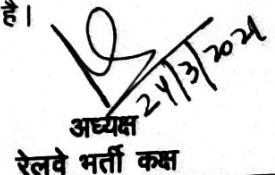 है।
24/3/2021
अध्यक्ष
रेलवे भर्ती कक्ष